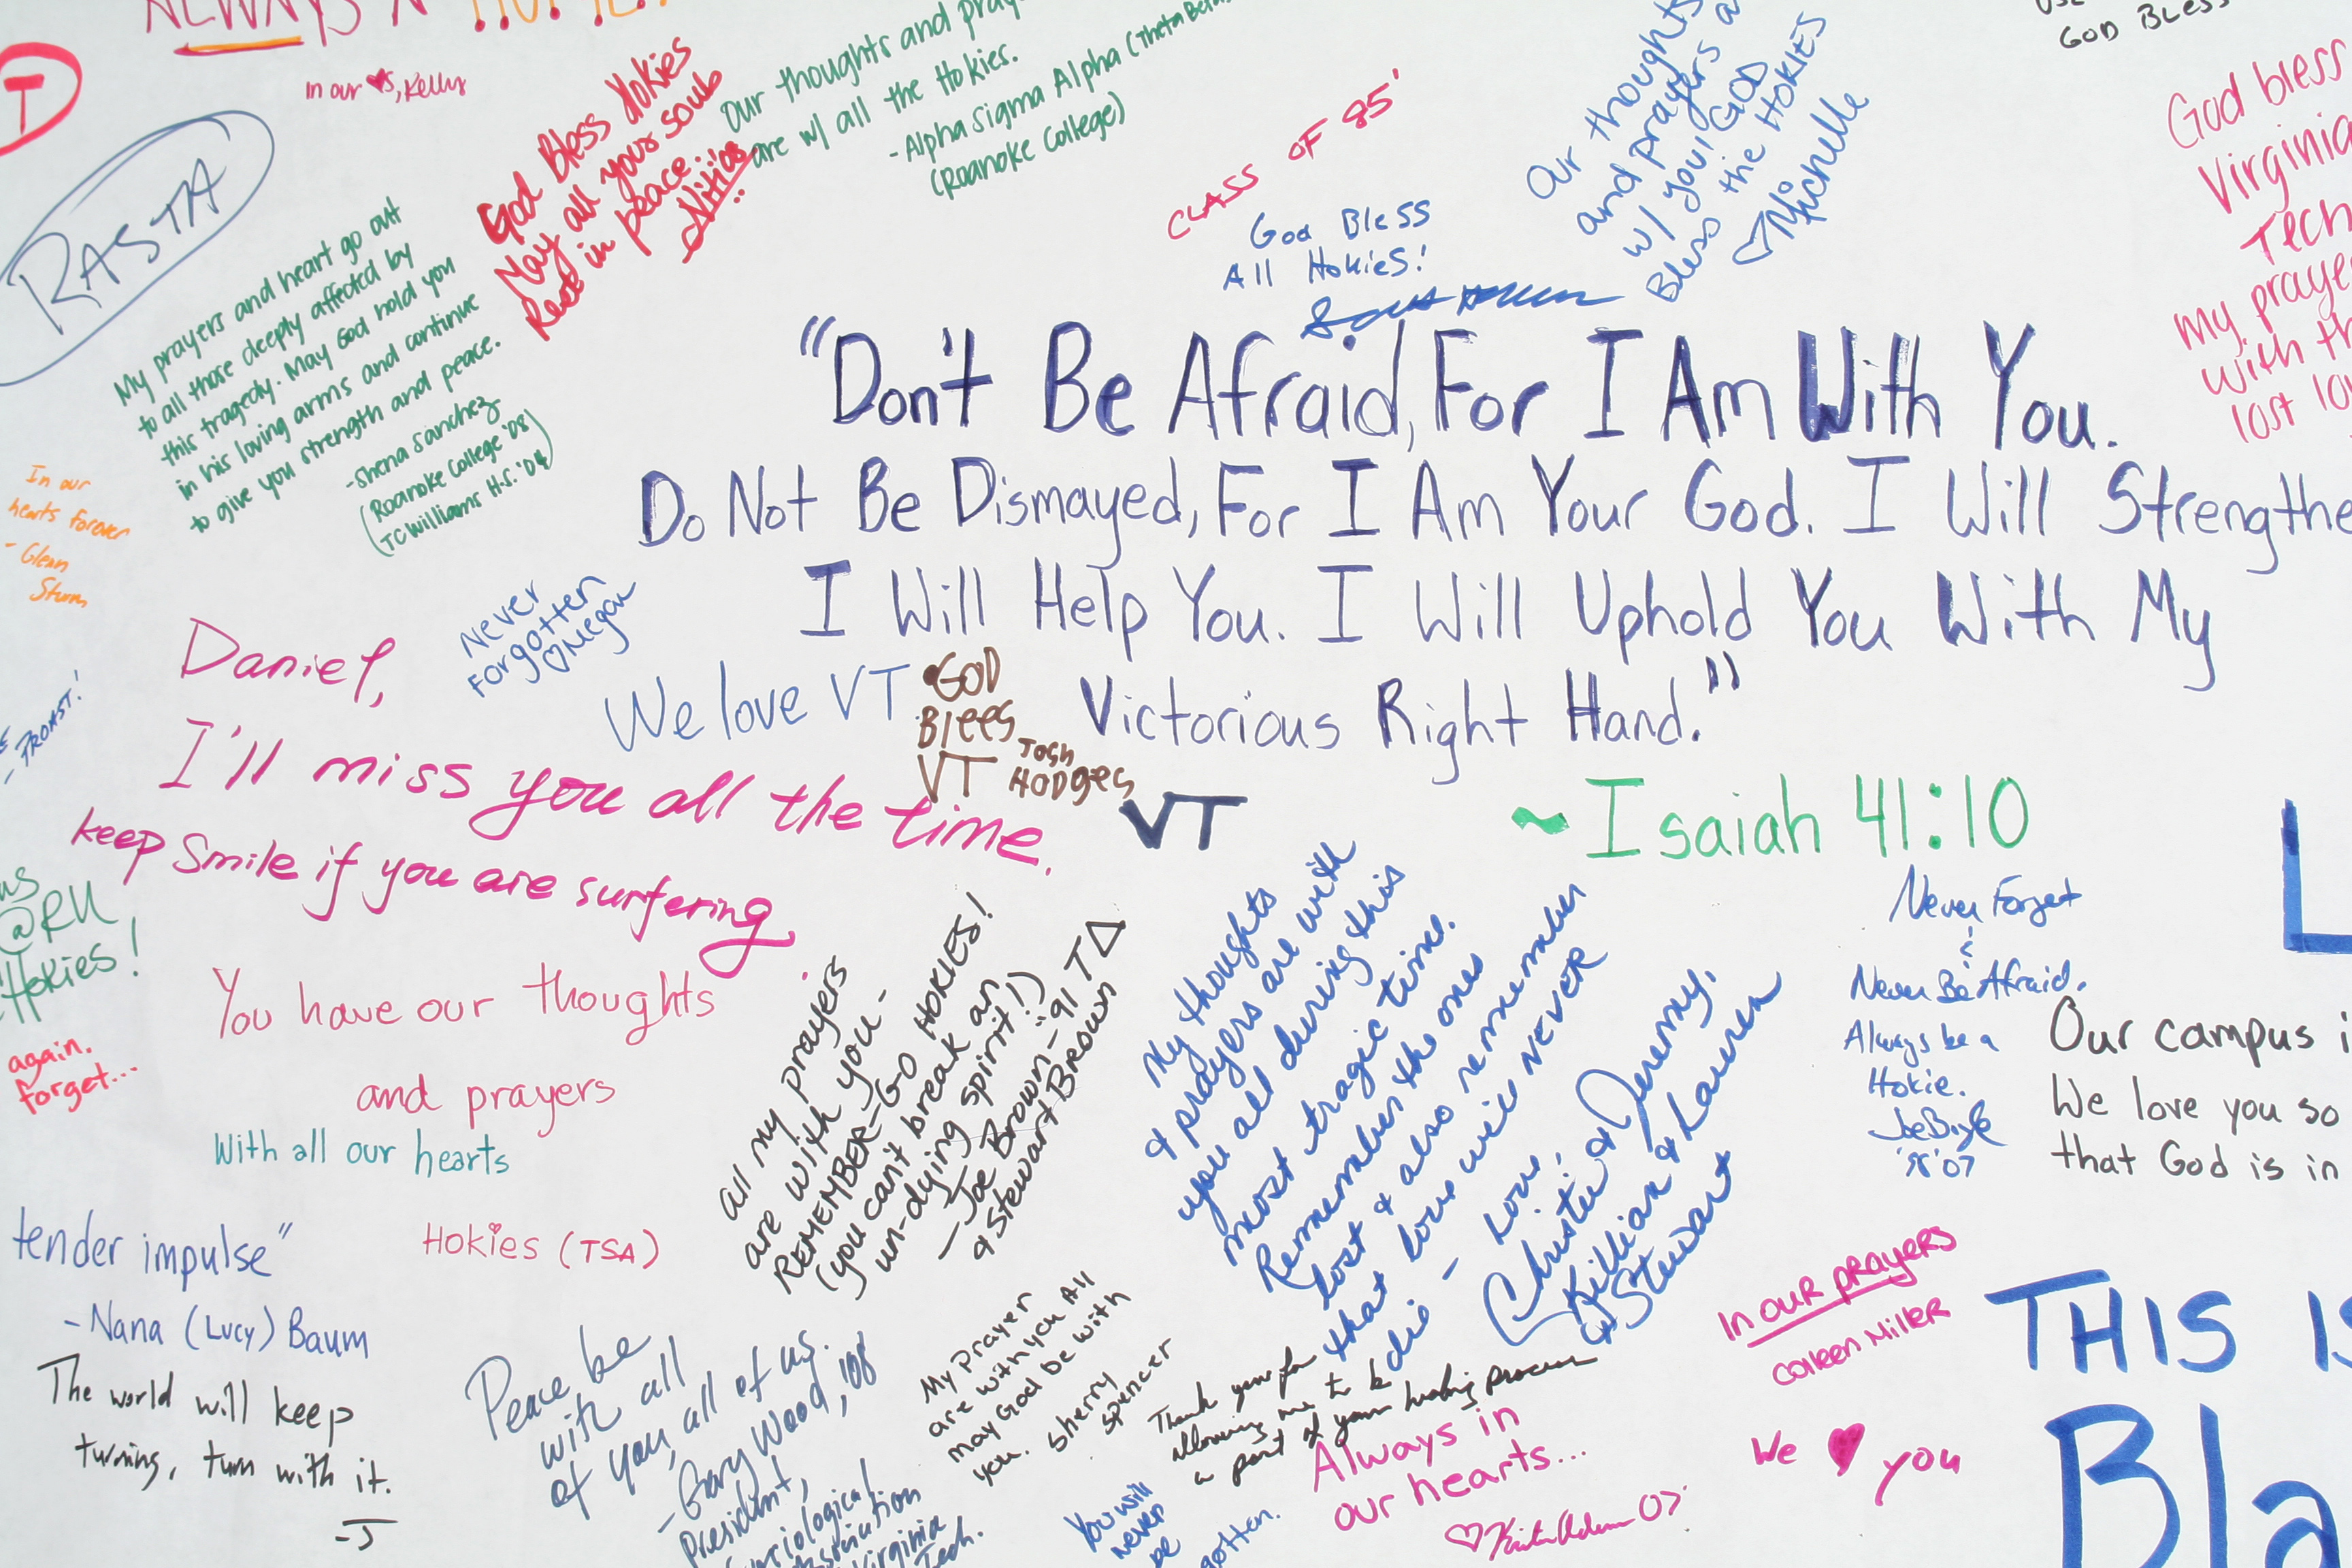 ALWAYS A
T
In our ♥s, Kelly
RASTA
God Bless Hokies
May all your souls
Rest in peace
Our thoughts and
are w/ all the Hokies.
-Alpha Sigma Alpha (Theta Beta
(Roanoke College)
CLASS OF 85'
God Bless
All Hokies!
Our thoughts
and prayers a
w/ you! GOD
Bless the HOKIES
♡ Michelle
GOD BLESS
God bless
Virginia
Tech
My praye
with th
lost lo
My prayers and heart go out
to all those deeply affected by
this tragedy. May God hold you
in his loving arms and continue
to give you strength and peace.
-Shena Sanchez
(Roanoke College '08)
(TC Williams H.S. '04)
In our
hearts forever
- Glenn
Sturm
"Don't Be Afraid, For I Am With You.
Do Not Be Dismayed, For I Am Your God. I Will Strengthe
I Will Help You. I Will Uphold You With My
Victorious Right Hand."
~Isaiah 41:10
Never
Forgotten
♡Megan
We love VT
•GOD
Blees
VT Josh
Hodges
VT
Daniel,
I'll miss you all the time.
keep Smile if you are surfering.
- TROAST!
us
@RU
Hokies!
again.
forget...
You have our thoughts
and prayers
With all our hearts
Hokies (TSA)
tender impulse"
-Nana (Lucy) Baum
The world will keep
turning, turn with it.
-J
all my prayers
are with you-
REMEMBER-GO HOKIES!
(you can't break an
un-dying spirit!)
-Joe Brown-'91 TΔ
& Stewart Brown
My thoughts
& prayers are with
you all during this
most tragic time.
Remember the ones
lost & also remember
that love will NEVER
die - Love,
Christy & Jeremy,
Killian & Lauren
& Stewart
Never Forget
&
Never Be Afraid.
Always be a
Hokie.
'07
L
Our campus i
We love you so
that God is in
Peace be
with all
of you, all of us.
-Gary Wood, '08
President,
Sociological
Virginia
Tech.
My Prayer
are with you All
may God be with
you. Sherry
Spencer
Thank you for
allowing me to be
a part of your healing process
Always in
our hearts...
07
You will
never
be
gotten.
In our prayers
Colleen Miller
We ♥ you
THIS IS
Bla